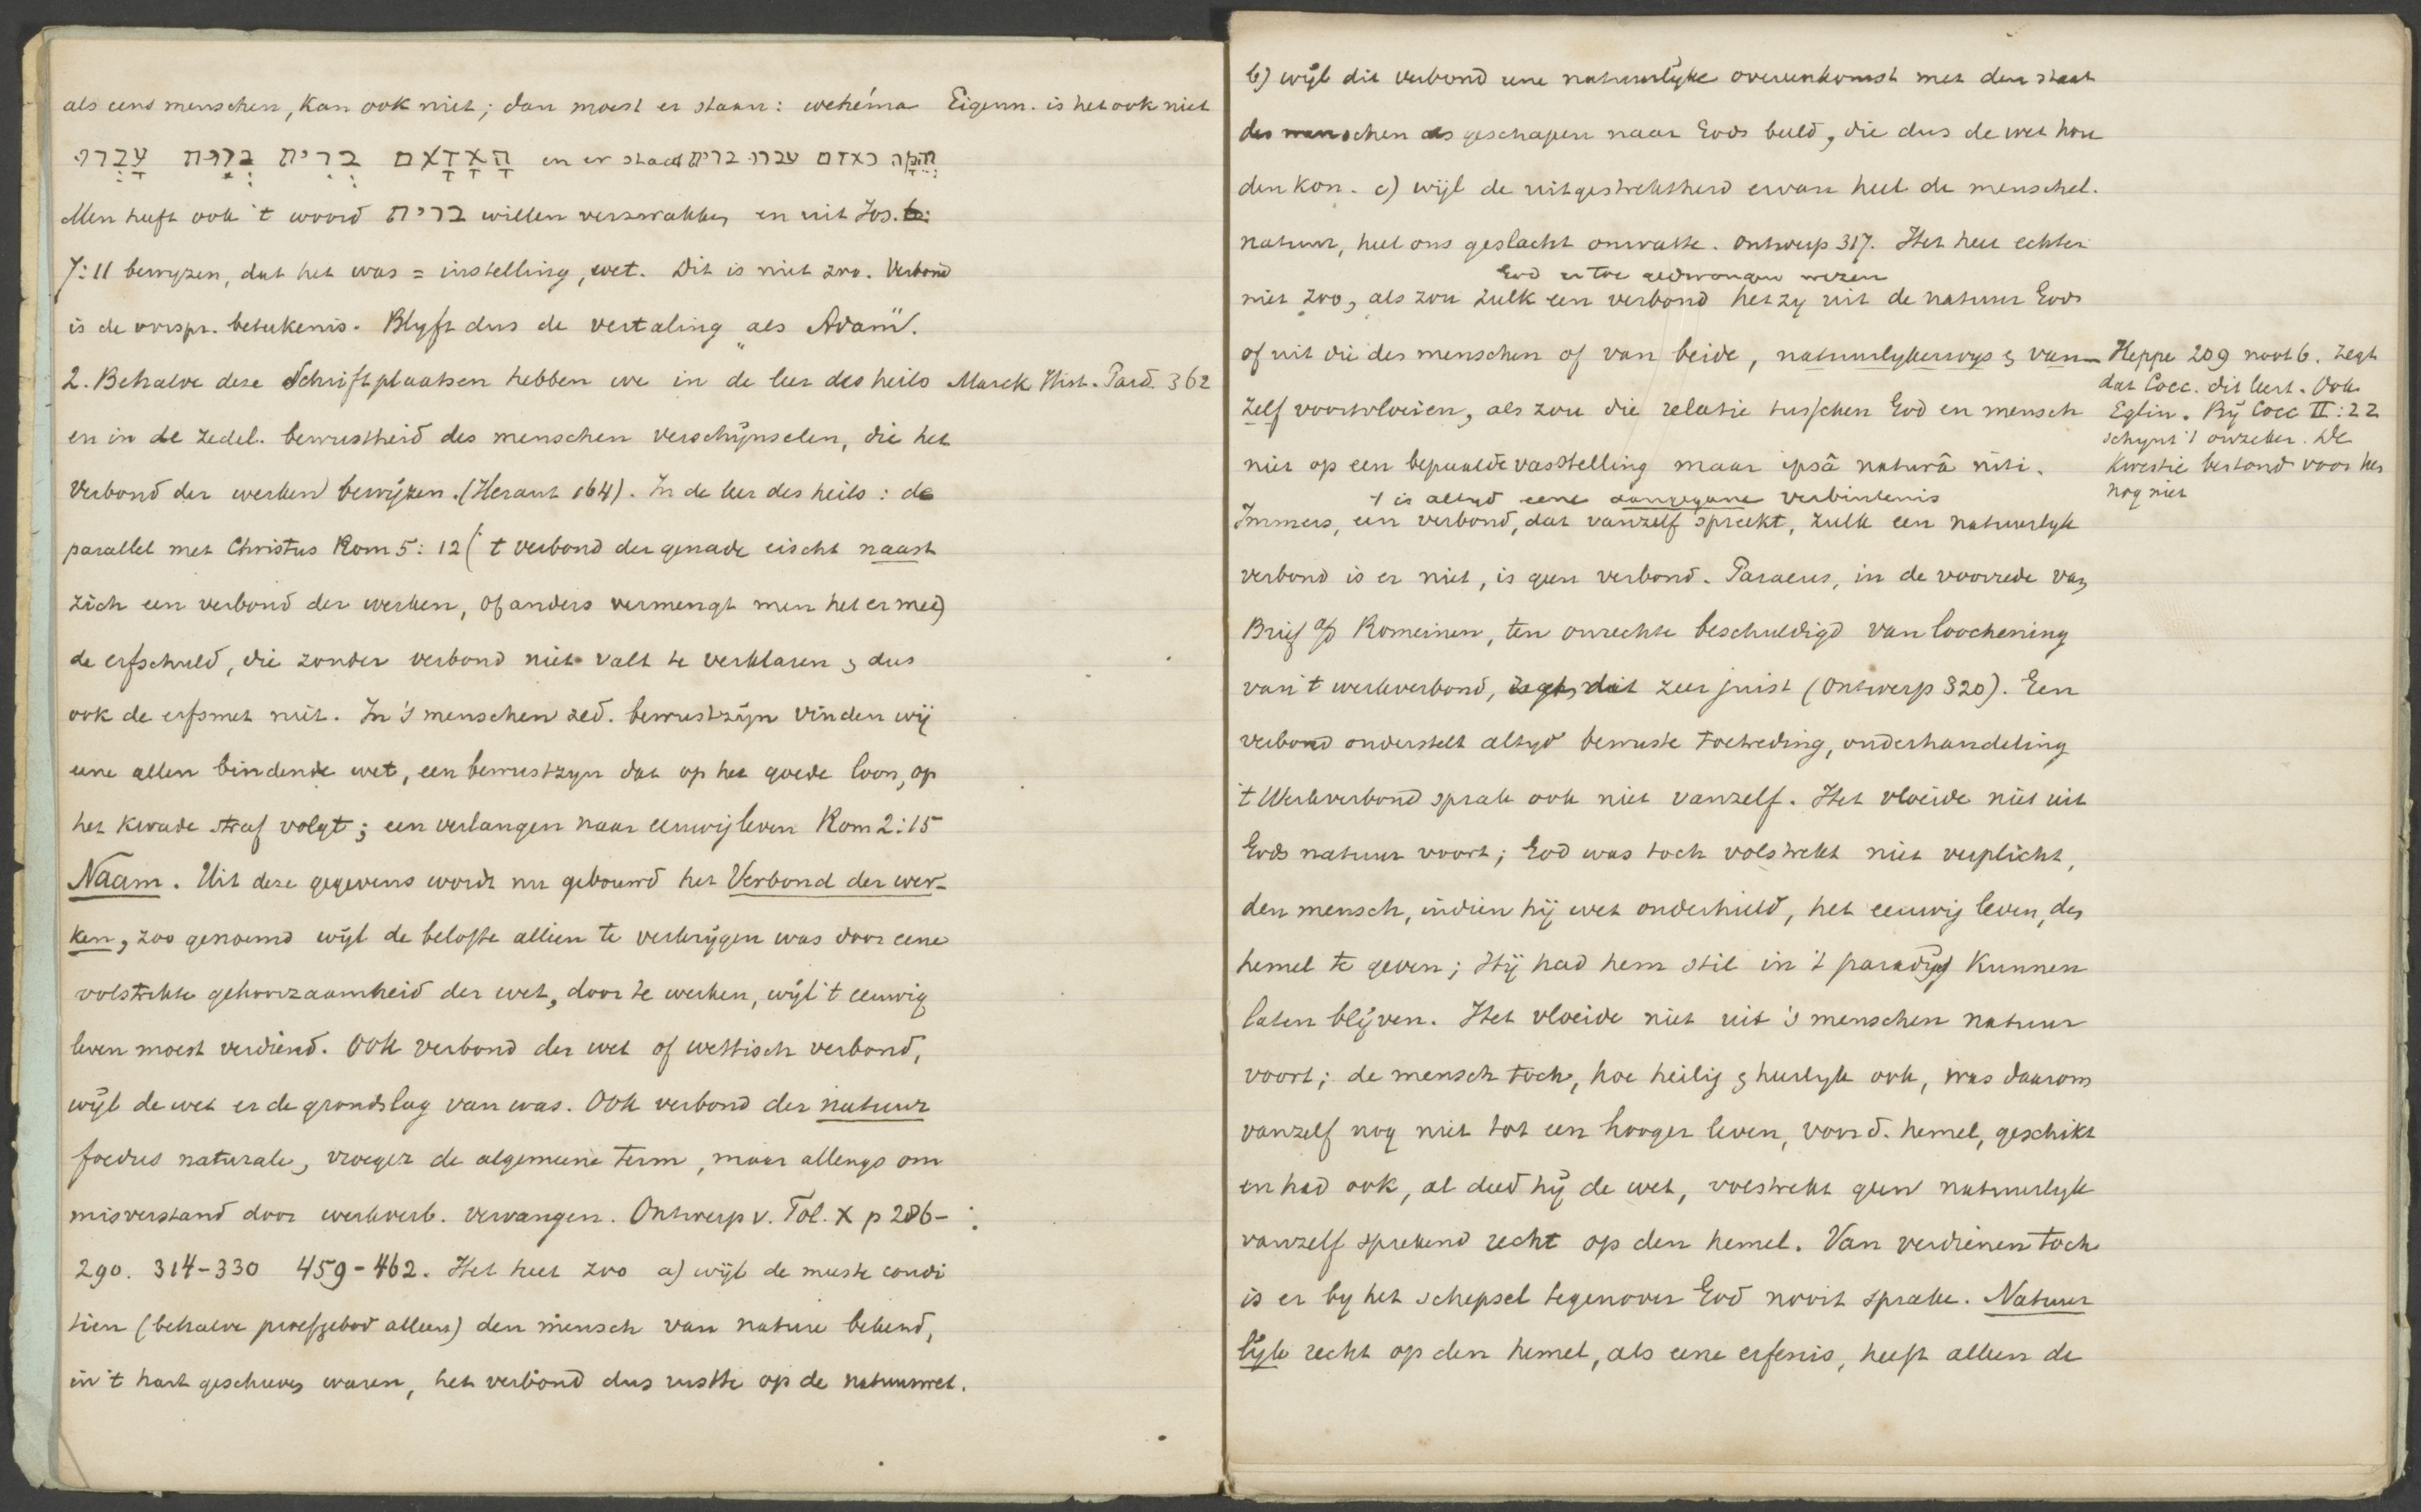 als eens menschen, kan ook niet; dan moest er staan: wehéma Eigenn. is het ook niet
הָאָדָם בְּרִית עָבְרוּ en er staat והמה כאדם עברו ברית
Men heeft ook 't woord ברית willen verzwakken en uit Jos.
7:11 bewyzen, dat het was = instelling, wet. Dit is niet zoo. Verbond
is de oorspr. beteekenis. Blyft dus de vertaling „als Adam".
2. Behalve deze Schriftplaatsen hebben we in de leer des heils Marck Hist. Parad. 362
en in de zedel. bewustheid des menschen verschijnselen, die het
Verbond der werken bewijzen. (Heraut 164). In de leer des heils: de
parallel met Christus Rom 5:12 ('t verbond der genade eischt naast
zich een verbond der werken, of anders vermengt men het er mee)
de erfschuld, die zonder verbond niet valt te verklaren & dus
ook de erfsmet niet. In 's menschen zed. bewustzijn vinden wij
eene allen bindende wet, een bewustzyn dat op het goede loon, op
het kwade straf volgt; een verlangen naar eeuwig leven Rom 2:15
Naam. Uit deze gegevens wordt nu gebouwd het Verbond der wer-
ken, zoo genoemd wijl de belofte alleen te verkrijgen was door eene
volstrekte gehoorzaamheid der wet, door te werken, wijl 't eeuwig
leven moest verdiend. Ook verbond der wet of wettisch verbond,
wijl de wet er de grondslag van was. Ook verbond der natuur
foedus naturale, vroeger de algemeene term, maar allengs om
misverstand door werkverb. vervangen. Ontwerp v. Tol. X p 286-
290. 314-330 459-462. Het heet zoo a) wijl de meeste condi
tien (behalve proefgebod alleen) den mensch van nature bekend,
in 't hart geschreven waren, het verbond dus rustte op de natuurwet.
b) wijl dit verbond eene natuurlijke overeenkomst met den staat
des menschen als geschapen naar Gods beeld, die dus de wet hou
den kon. c) wijl de uitgestrektheid ervan heel de menschel.
natuur, heel ons geslacht omvatte. Ontwerp 317. Het heet echter
God er toe gedwongen wezen
niet zoo, als zou zulk een verbond hetzy uit de natuur Gods
of uit die des menschen of van beide, natuurlykerwys & van
zelf voortvloeien, als zou die relatie tusschen God en mensch
niet op een bepaalde vaststelling maar ipsâ naturâ niti.
't is altyd eene aangegane verbintenis
Immers, een verbond, dat vanzelf spreekt, zulk een natuurlyk
verbond is er niet, is geen verbond. Paraeus, in de voorrede van
Brief a/d Romeinen, ten onrechte beschuldigd van loochening
van 't werkverbond, zegt dit zeer juist (Ontwerp 320). Een
verbond onderstelt altyd bewuste toetreding, onderhandeling
't Werkverbond sprak ook niet vanzelf. Het vloeide niet uit
Gods natuur voort; God was toch volstrekt niet verplicht,
den mensch, indien hij wet onderhield, het eeuwig leven, den
hemel te geven; Hij had hem stil in 't paradijs kunnen
laten blijven. Het vloeide niet uit 's menschen natuur
voort; de mensch toch, hoe heilig & heerlyk ook, was daarom
vanzelf nog niet tot een hooger leven, voor d. hemel, geschikt
en had ook, al deed hij de wet, volstrekt geen natuurlyk
vanzelf sprekend recht op den hemel. Van verdienen toch
is er by het schepsel tegenover God nooit sprake. Natuur
lijk recht op den hemel, als eene erfenis, heeft alleen de
Heppe 209 noot 6. zegt
dat Cocc. dit leert. Ook
Eglin. Bij Cocc II:22
schynt 't onzeker. De
kwestie bestond voor hem
nog niet